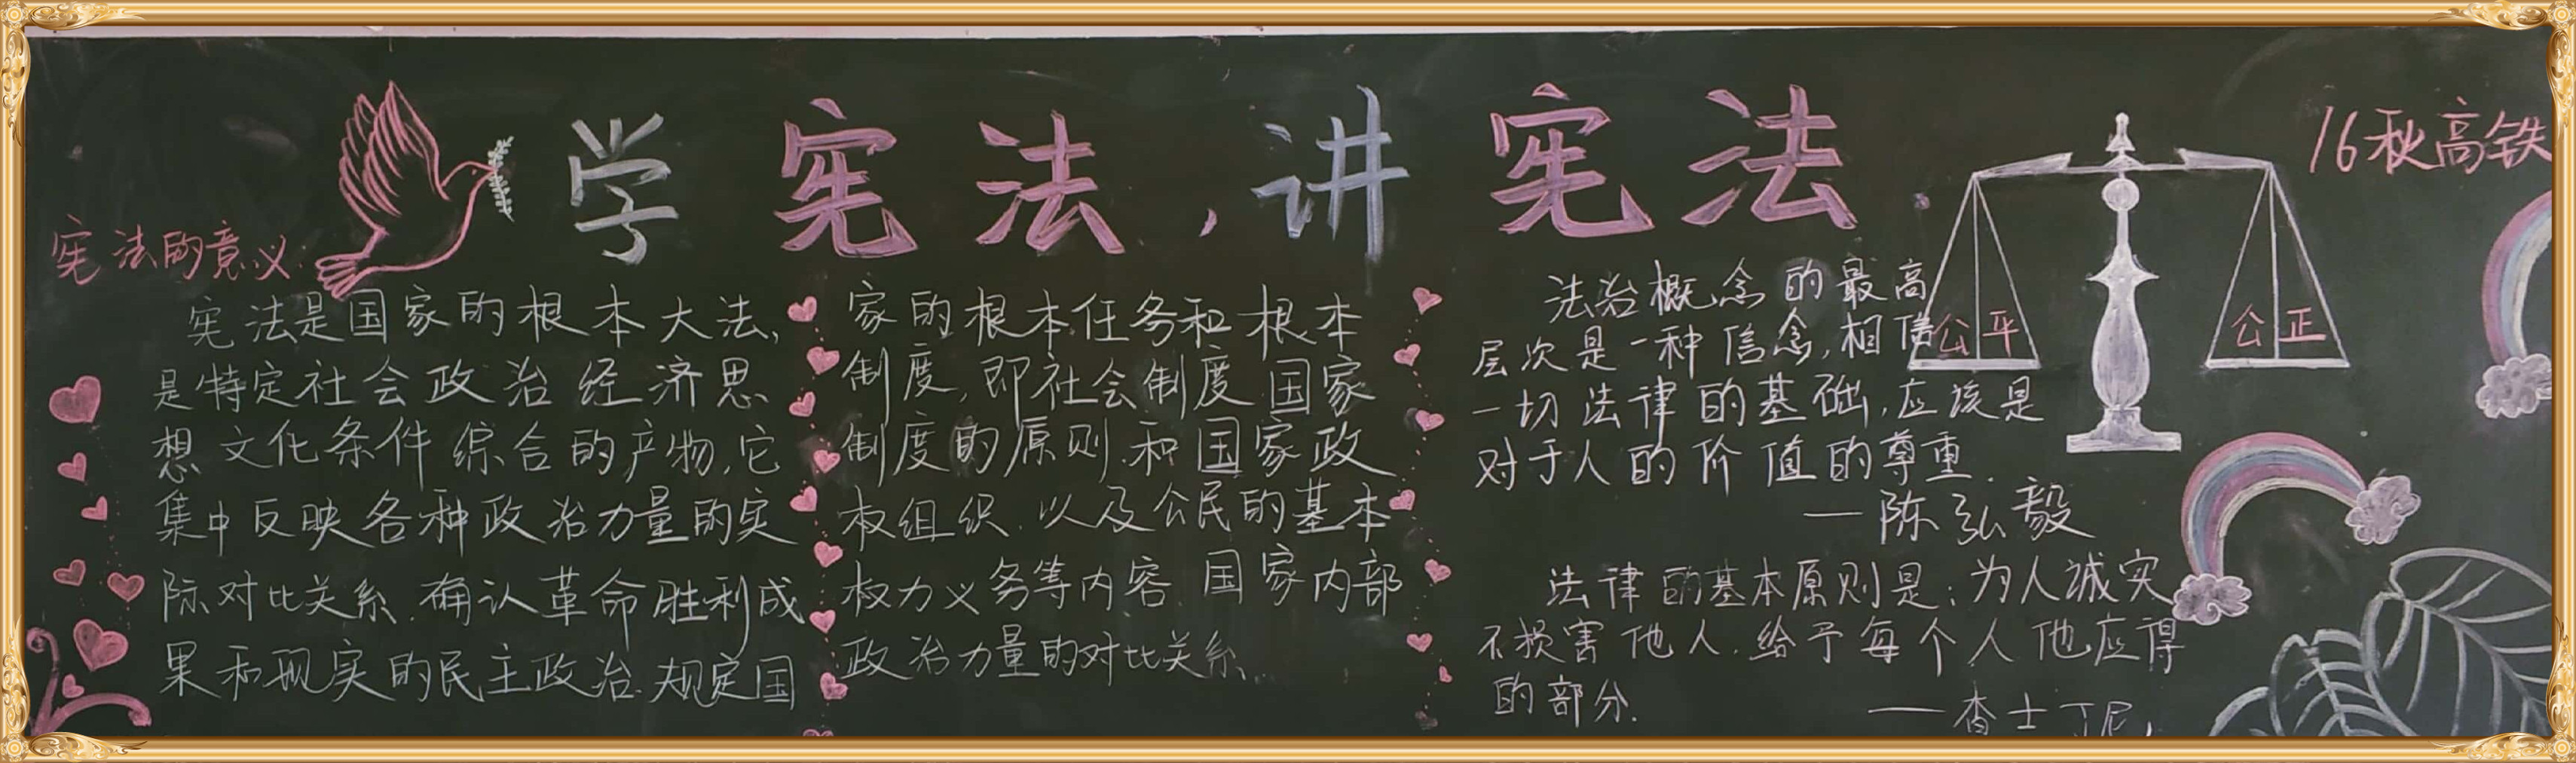 学宪法，讲宪法
16秋高铁
宪法的意义
宪法是国家的根本大法,
是特定社会政治经济思
想文化条件综合的产物,它
集中反映各种政治力量的实
际对比关系.确认革命胜利成
果和现实的民主政治.规定国
家的根本任务和根本
制度,即社会制度国家
制度的原则.和国家政
权组织.以及公民的基本
权力义务等内容.国家内部
政治力量的对比关系.
法治概念的最高
层次是一种信念,相信
一切法律的基础,应该是
对于人的价值的尊重.
—陈弘毅
公平
公正
法律的基本原则是:为人诚实
不损害他人.给予每个人他应得
的部分.
——查士丁尼